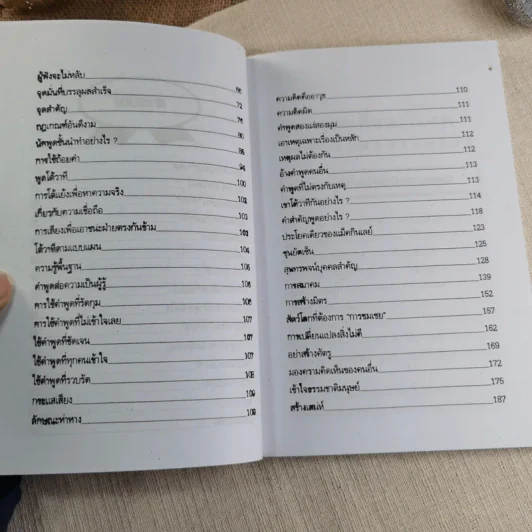 ผู้ฟังจะไม่หลับ
จุดมันที่บรรลุผลสำเร็จ 66
จุดสำคัญ 72
กฎเกณฑ์อันดีงาม 76
นักพูดชั้นนำทำอย่างไร ? 80
การใช้ถ้อยคำ 86
พูดโต้วาที 94
การโต้แย้งเพื่อหาความจริง 100
เกี่ยวกับความเชื่อถือ 102
การเลี่ยงเพื่อเอาชนะฝ่ายตรงกันข้าม 103
โต้วาทีตามแบบแผน 106
ความรู้พื้นฐาน 106
คำพูดต่อความเป็นผู้รู้ 106
การใช้คำพูดที่รัดกุม 106
การใช้คำพูดที่ไม่เข้าใจเลย 107
ใช้คำพูดที่ชัดเจน 107
ใช้คำพูดที่ทุกคนเข้าใจ 107
ใช้คำพูดที่รวบรัด 108
กระแสเสียง 109
ลักษณะท่าทาง 109
ความคิดคืออาวุธ 110
ความคิดผิด 111
คำพูดสองแง่สองมุม 111
เอาเหตุเฉพาะเรื่องเป็นหลัก 112
เหตุผลไม่ต้องกัน 112
อ้างคำพูดคนอื่น 113
คำพูดที่ไม่ตรงกับเหตุ 113
เขาโต้วาทีกันอย่างไร ? 114
คำสำคัญพูดอย่างไร ? 118
ประโยคเดียวของแม็คกินเลย์ 123
ขุนยัดเซ็น 125
สุนทรพจน์บุคคลสำคัญ 128
การสมาคม 139
การสร้างมิตร 152
สัตว์โลกที่ต้องการ "การชมเชย" 157
การเปลี่ยนแปลงสิ่งไม่ดี 162
อย่าสร้างศัตรู 169
มองความคิดเห็นของคนอื่น 172
เข้าใจธรรมชาติมนุษย์ 175
สร้างเสน่ห์ 187